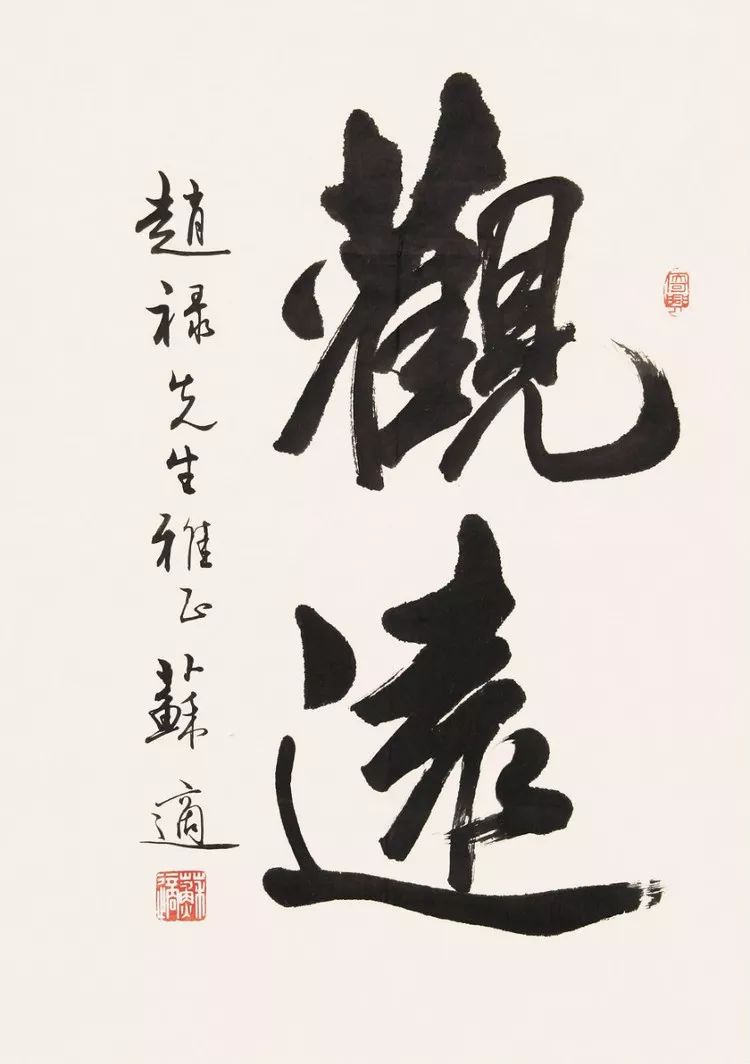 觀遠
趙禄先生雅正 蘇適
蘇適